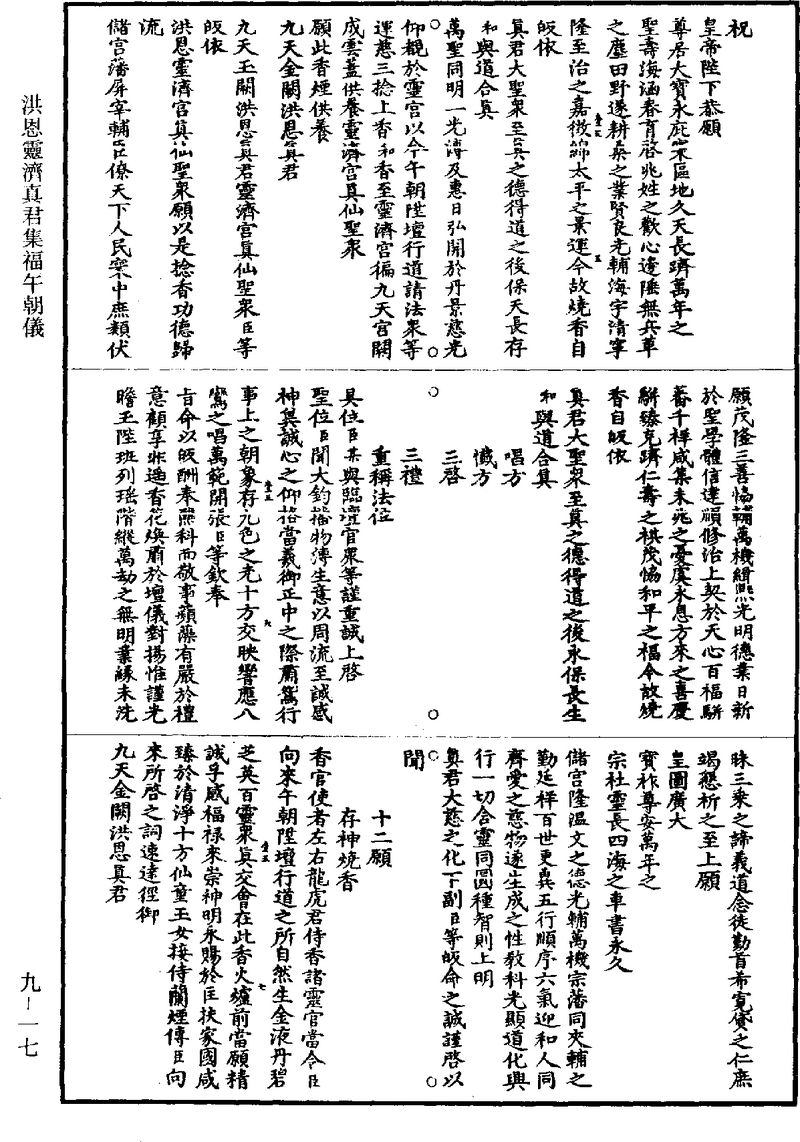 祝
皇帝陛下恭願
尊居大寶永庇寰區地久天長躋萬年之
聖壽海涵春育啓兆姓之歡心邊陲無兵革
之塵田野遂耕桑之業賢良光輔海宇清寧
隆至治之嘉徵綿太平之景運今故燒香自
皈依
真君大聖衆至真之德得道之後保天長存
和與道合真
萬聖同明一光溥及惠日弘開於丹景慈光
仰觀於靈宮以今午朝陞壇行道請法衆等
運慈三捻上香和香至靈濟宮徧九天宮闕
成雲蓋供養靈濟宮真仙聖衆
願此香煙供養
九天金闕洪恩真君
九天玉闕洪恩真君靈濟宮真仙聖衆臣等
皈依
洪恩靈濟宮真仙聖衆願以是捻香功德歸
流
儲宮藩屏宰輔臣僚天下人民寰中庶類伏
願茂隆三善恊輔萬機緝熙光明德業日新
於聖學體信達順修治上契於天心百福駢
蕃千祥咸集未兆之憂虞永息方來之喜慶
駢臻克躋仁壽之祺茂恊和平之福今故燒
香自皈依
真君大聖衆至真之德得道之後永保長生
和與道合真
唱方
懺方
三啓
三禮
重稱法位
具位臣某與臨壇官衆等謹重誠上啓
聖位臣聞大鈞播物溥生意以周流至誠感
神與誠心之仰格當羲御正中之際肅鴛行
事上之朝象存九色之光十方交映響應八
鸞之唱萬範開張臣等欽奉
旨命以皈酬奉熙科而敬事蘋藻有嚴於禮
意顧享非遥香花煥肅於壇儀對揚惟謹光
瞻玉陛班列瑶階縱萬劫之無明業緣未洗
昧三乘之諦義道念徒勤首布寬貸之仁庶
竭懇祈之至上願
皇圖廣大
寶祚尊安萬年之
宗社靈長四海之車書永久
儲宮隆温文之德光輔萬機宗藩同夾輔之
勤廷祥百世更冀五行順序六氣迎和人同
齊愛之慈物遂生成之性教科光顯道化興
行一切含靈同圓種智則上明
真君大慈之化下副臣等皈命之誠謹啓以
聞
十二願
存神燒香
香官使者左右龍虎君侍香諸靈官當令臣
向來午朝陞壇行道之所自然生金液丹碧
芝英百靈衆真交會在此香火爐前當願精
誠孚感福祿來崇神明永賜於匡扶家國咸
臻於清淨十方仙童玉女接侍蘭煙傳臣向
來所啓之詞速達徑御
九天金闕洪恩真君
洪恩靈濟真君集福午朝儀
九—一七